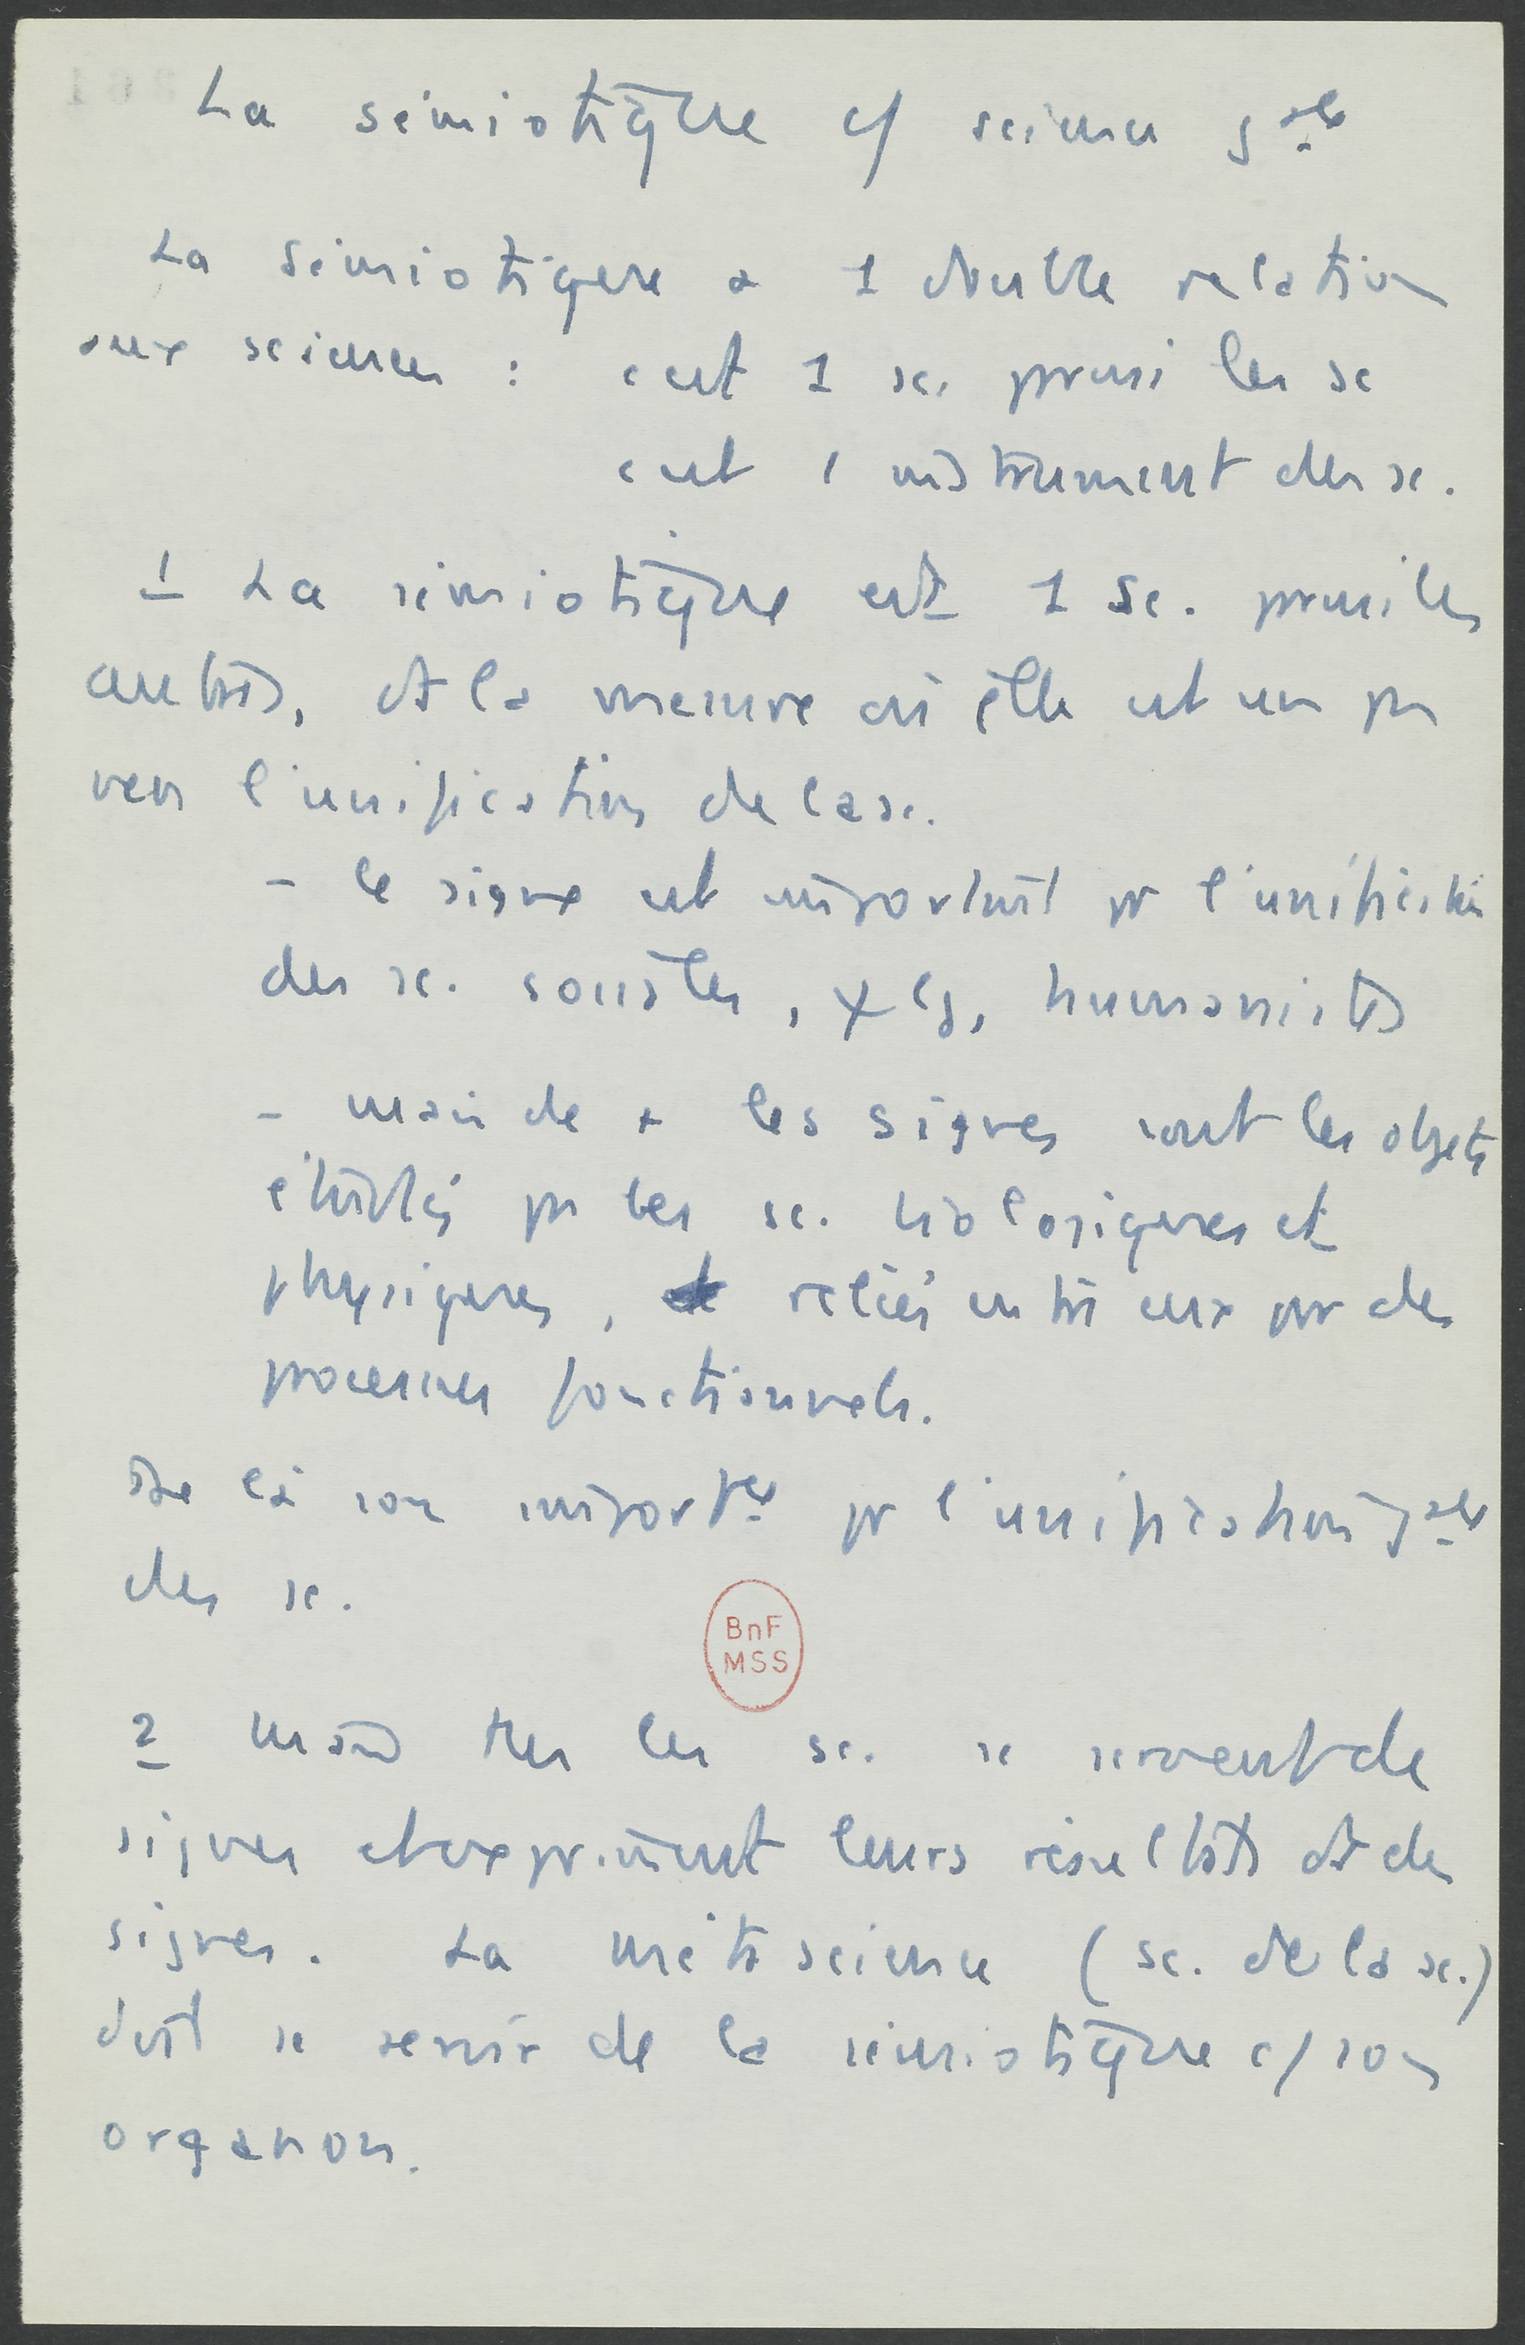 La sémiotique c/ science gale
La sémiotique a 1 double relation
aux sciences : c'est 1 sc. parmi les sc
c'est 1 instrument des sc.
1 La sémiotique est 1 Sc. parmi les
autres, ds la mesure où elle est un pas
vers l'unification de la sc.
- le signe est important pr l'unification
des sc. sociales, ψ lgs, humanistes
- mais de + les signes sont les objets
étudiés par les sc. biologiques et
physiques, reliés entre eux par des
processus fonctionnels.
De là son importce pr l'unification gale
des sc.
BnF
MSS
2 Mais ttes les sc. se servent de
signes et expriment leurs résultats ds des
signes. La méta science (sc. de la sc.)
doit se servir de la sémiotique c/ son
organon.